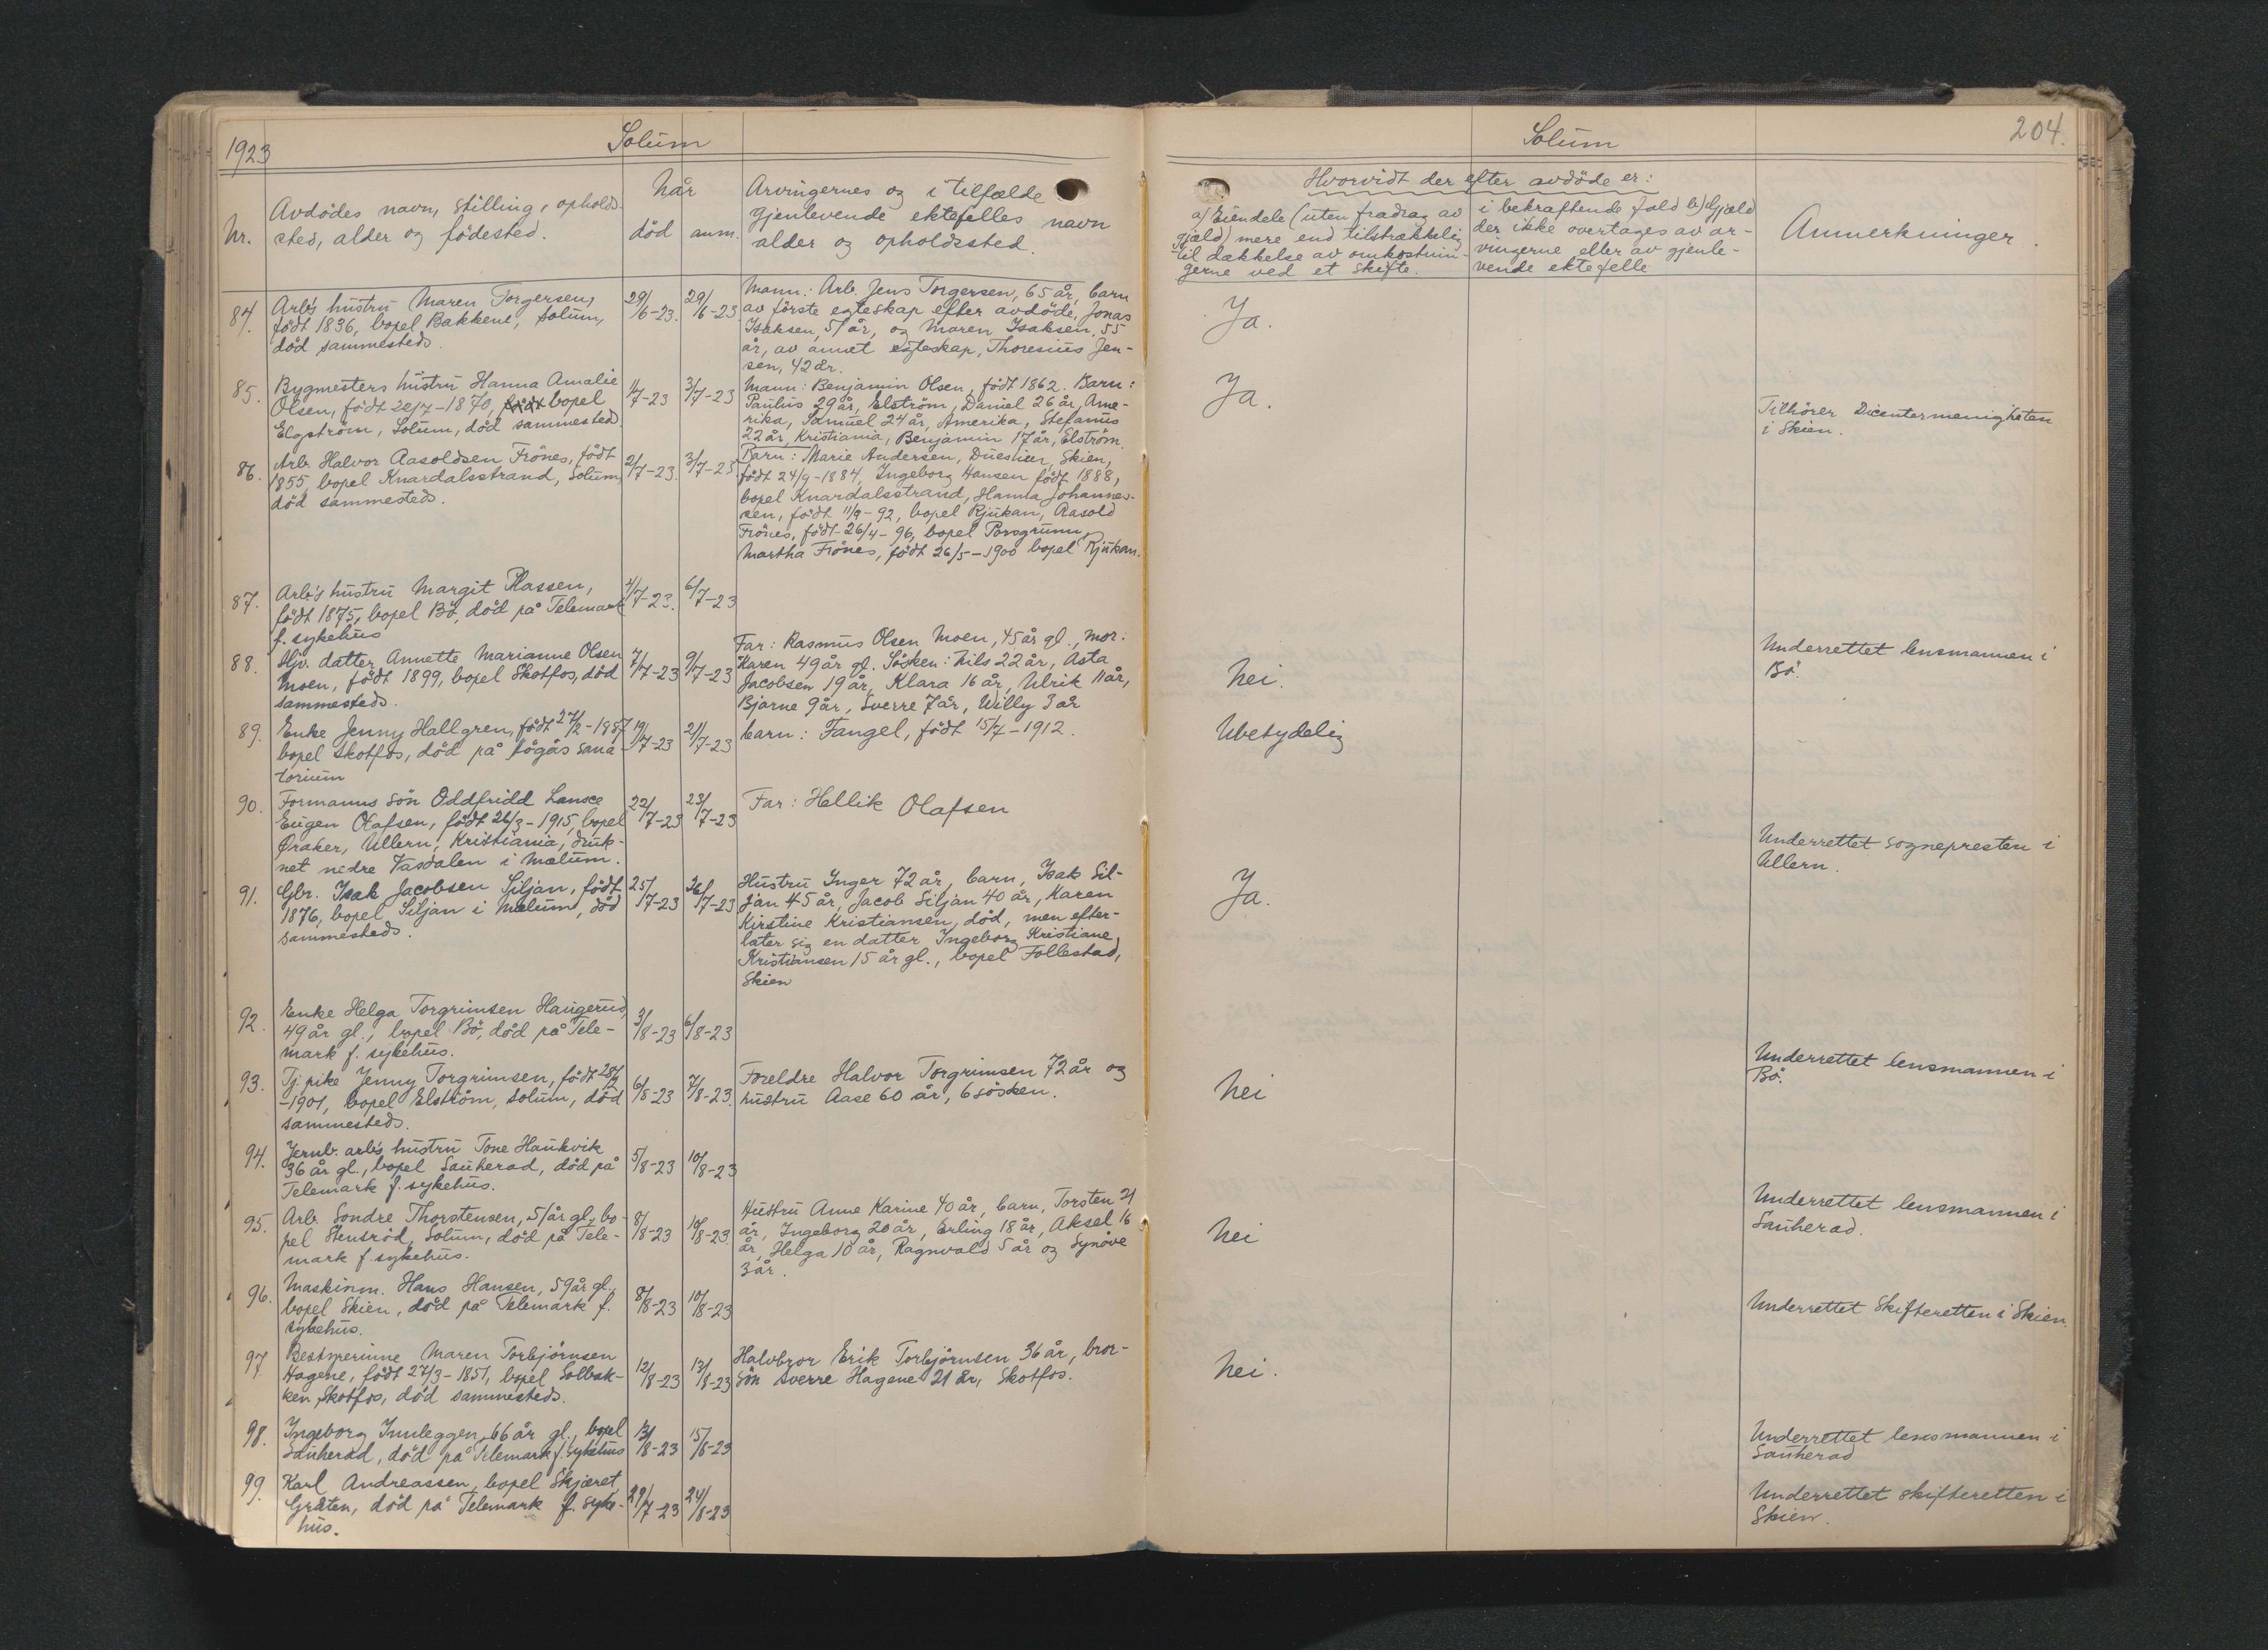 1923
Solum
Nr.
Avdödes navn, stilling, opholds-
sted, alder og födested.
Når
död anm.
Arvingernes og i tilfælde
gjenlevende ektefelles navn
alder og opholdssted.
84. Arb's hustru Maren Torgersen,
födt 1836, bopel Bakkene, Solum,
död sammesteds.
29/6-23. 29/6-23
Mann: Arb. Jens Torgersen, 65 år, barn
av förste egteskap efter avdöde, Jonas
Isaksen, 57 år, og Maren Isaksen, 55
år, av annet egteskap, Thoresius Jen-
sen, 42 år.
85. Bygmesters hustru Hanna Amalie
Olsen, födt 20/7-1870, födt bopel
Elgström, Solum, död sammested.
1/7-23 3/7-23
Mann: Benjamin Olsen, födt 1862. Barn:
Paulus 29 år, Elström, Daniel 26 år, Ame-
rika, Samuel 24 år, Amerika, Stefanus
22 år, Kristiania, Benjamin 17 år, Elström.
86. Arb. Halvor Aasoldsen Frönes, födt
1855, bopel Knardalsstrand, Solum,
död sammesteds.
2/7-23. 3/7-23
Barn: Marie Andersen, Duestien, Skien,
födt 24/9-1884, Ingeborg Hansen födt 1888,
bopel Knardalsstrand, Hanna Johannes-
sen, födt 11/9-92, bopel Rjukan, Aasold
Frönes, födt 26/4-96, bopel Porsgrunn,
Martha Frönes, födt 26/5-1900 bopel Rjukan.
87. Arb's hustru Margit Plassen,
födt 1875, bopel Bö, död på Telemark
f. sykehus
4/7-23. 6/7-23
88. Hjv. datter Annette Marianne Olsen
Moen, födt 1899, bopel Skotfos, död
sammesteds.
7/7-23 9/7-23
Far: Rasmus Olsen Moen, 45 år gl., mor.
Karen 49 år gl. Sösken: Nils 22 år, Asta
Jacobsen 19 år, Klara 16 år, Ulrik 11 år,
Bjarne 9 år, Sverre 7 år, Willy 3 år
89. Enke Jenny Hallgren, födt 27/2-1887
bopel Skotfos, död på Fögås sana-
torium
19/7-23 21/7-23
barn: Fangel, födt 15/7-1912.
90. Formanns sön Oddfridd Lansce
Eugen Olafsen, födt 26/3-1915, bopel
Øraker, Ullern, Kristiania, druk-
net nedre Vasdalen i Mælum.
22/7-23 23/7-23
Far: Hellik Olafsen
91. Gbr. Isak Jacobsen Siljan, födt
1876, bopel Siljan i Mælum, död
sammesteds.
25/7-23 26/7-23
Hustru Inger 72 år, barn, Isak Sil-
jan 45 år, Jacob Siljan 40 år, Karen
Kirstine Kristiansen, död, men efter-
later sig en datter Ingeborg Kristiane
Kristiansen 15 år gl., bopel Follestad,
Skien
92. Enke Helga Torgrimsen Haugerud,
49 år gl., bopel Bö, död på Tele-
mark f. sykehus.
3/8-23 6/8-23
93. Tj. pike Jenny Torgrimsen, födt 28/2
-1901, bopel Elström, Solum, död
sammesteds.
6/8-23 7/8-23.
Foreldre Halvor Torgrimsen 72 år og
hustru Aase 60 år, 6 sösken.
94. Jernb. arb's hustru Tone Haukvik
36 år gl., bopel Sauherad, död på
Telemark f. sykehus.
5/8-23 10/8-23
95. Arb. Sondre Thorstensen, 51 år gl, bo-
pel Stensröd, Solum, död på Tele-
mark f. sykehus.
8/8-23 10/8-23
Hustru Anne Karine 40 år, barn, Torsten 21
år, Ingeborg 20 år, Erling 18 år, Aksel 16
år, Helga 10 år, Ragnvald 5 år og Synöve
3 år.
96. Maskinm. Hans Hansen, 59 år gl.,
bopel Skien, död på Telemark f.
sykehus.
8/8-23 10/8-23
97. Bestyrerinne Maren Torbjörnsen
Hagene, födt 27/3-1851, bopel Solbak-
ken, Skotfos, död sammesteds.
12/8-23 13/8-23
Halvbror Erik Torbjörnsen 36 år, bror-
sön Sverre Hagene 21 år, Skotfos.
98. Ingeborg Innleggen, 66 år gl., bopel
Sauherad, död på Telemark f. sykehus
13/8-23 15/8-23
99. Karl Andreassen, bopel Skjæret,
Gråten, död på Telemark f. syke-
hus.
29/7-23 24/8-23
Solum
204.
Hvorvidt der efter avdöde er:
a) Eiendele (uten fradrag av
gjæld) mere end tilstrækkelig
til dækkelse av omkostnin-
gerne ved et skifte.
i bekræftende fald b) Gjæld
der ikke overtages av ar-
vingerne eller av gjenle-
vende ektefelle
Anmerkninger.
Ja.
Ja.
Tilhörer Dicentermenigheten
i Skien.
Underrettet lensmannen i
Bö.
Nei.
Ubetydelig
Underrettet sognepresten i
Ullern.
Ja.
Underrettet lensmannen i
Bö.
Nei
Underrettet lensmannen i
Sauherad.
Nei
Underrettet Skifteretten i Skien.
Nei.
Underrettet lensmannen i
Sauherad
Underrettet skifteretten i
Skien.